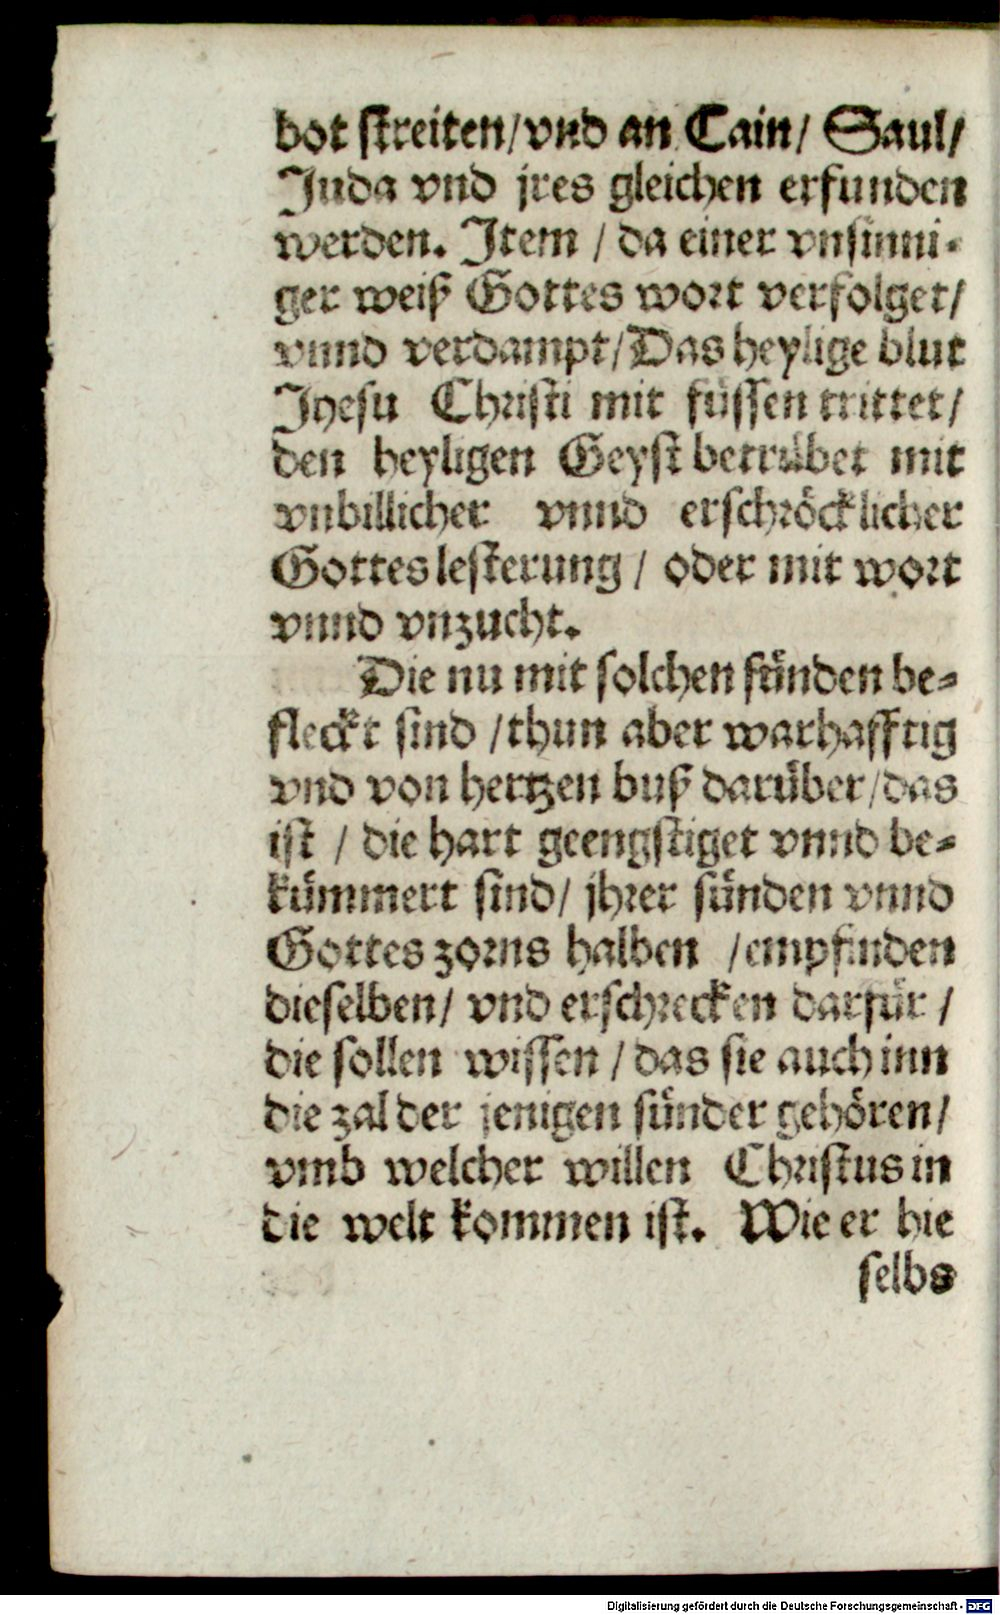 bot streiten/vnd an Cain/ Saul/
Juda vnd jres gleichen erfunden
werden. Item / da einer vnsinni-
ger weiß Gottes wort verfolget/
vnnd verdampt/Das heylige blut
Jhesu Christi mit füssen trittet/
den heyligen Geyst betrübet mit
vnbillicher vnnd erschröcklicher
Gotteslesterung / oder mit wort
vnnd vnzucht.
Die nu mit solchen sünden be-
fleckt sind /thun aber warhafftig
vnd von hertzen buß darüber/das
ist / die hart geengstiget vnnd be-
kümmert sind/ jhrer sünden vnnd
Gottes zorns halben /empfinden
dieselben/ vnd erschrecken darfür /
die sollen wissen / das sie auch inn
die zal der jenigen sünder gehören/
vmb welcher willen Christus in
die welt kommen ist. Wie er hie
selbs
Digitalisierung gefördert durch die Deutsche Forschungsgemeinschaft - DFG